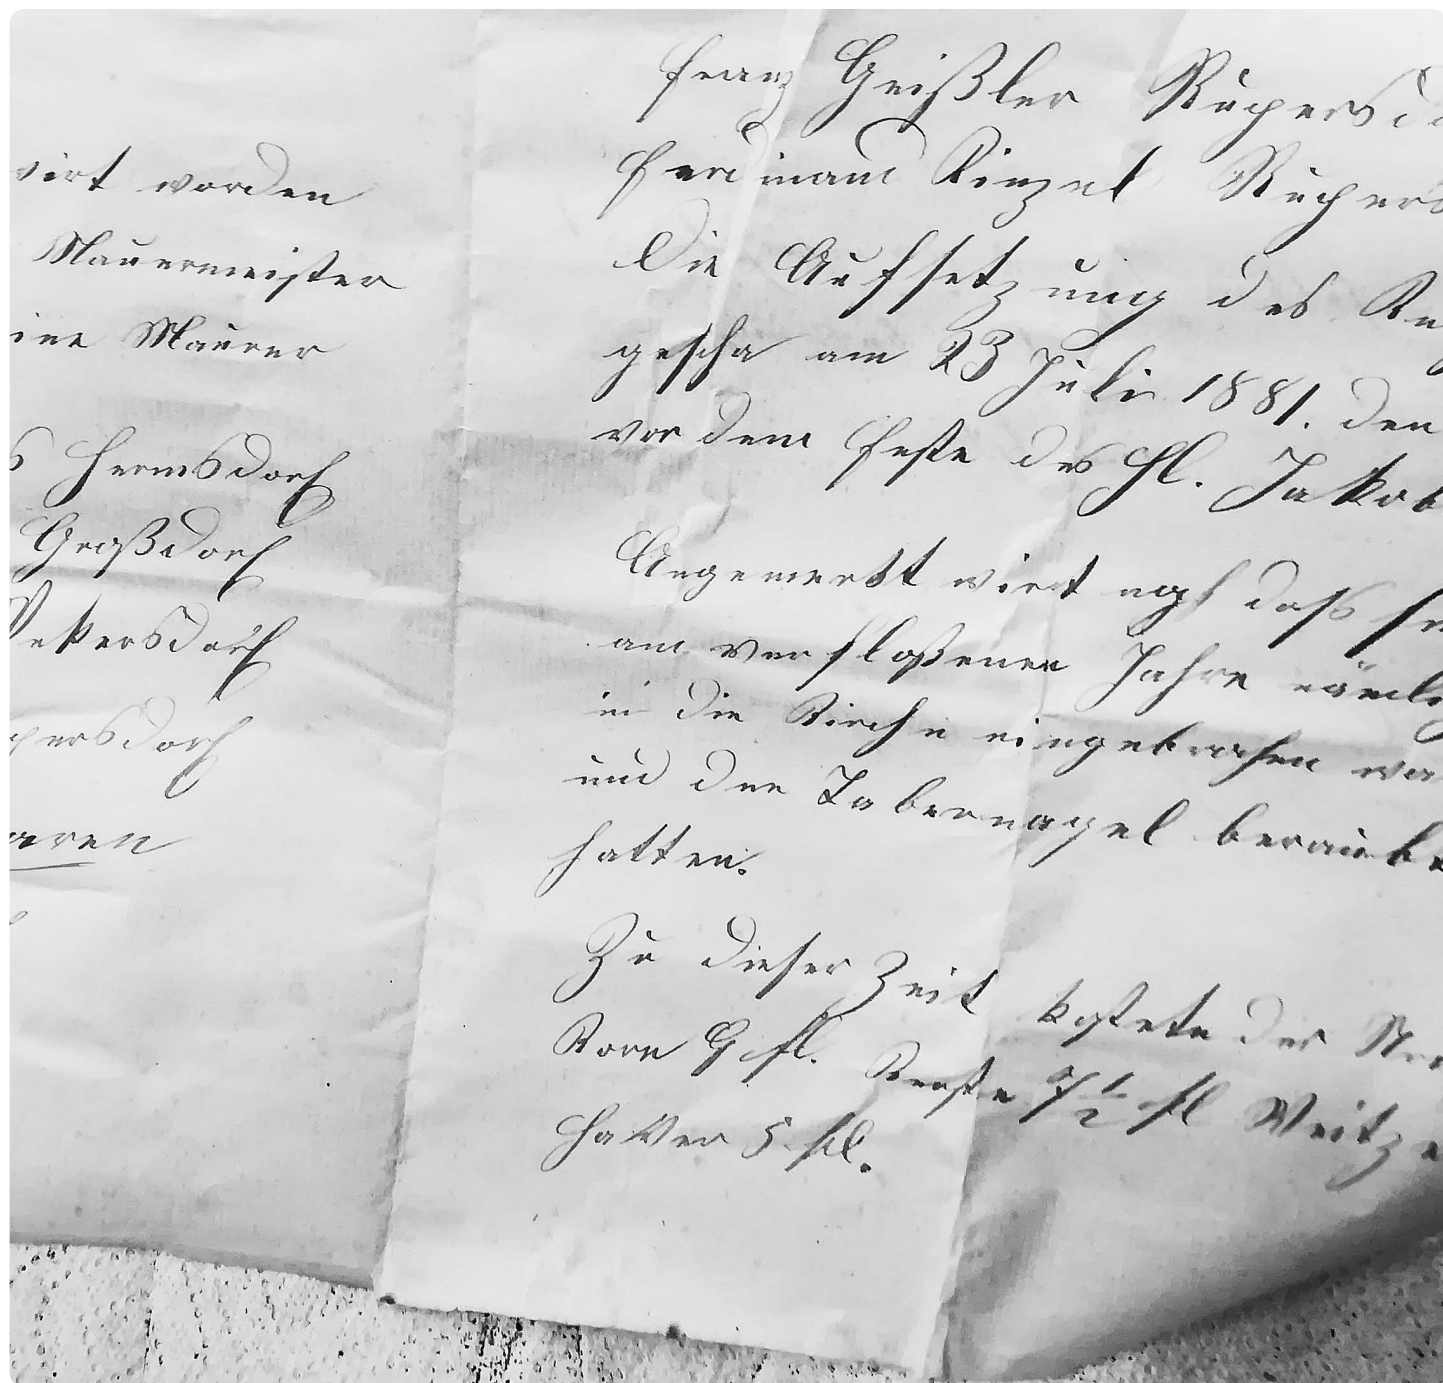 worden
Mauermeister
Maurer
Hermsdorf
Großdorf
Wekersdorf
persdorf
waren
Franz Geißler Rupersd
Ferdinand Kinzel Rupers
Die Aufsetzung des
gescha am 23 Juli 1881. den
vor dem Feste des Hl. Jakob
Angemerkt wirt daß
am verfloßenen Jahre
in die Kirche eingebrochen
und den Tabernagel beraubt
hatten.
Zu dieser Zeit kostete der
Korn 9 fl. Kerste 7 1/2 fl Weitze
Haver 5 fl.